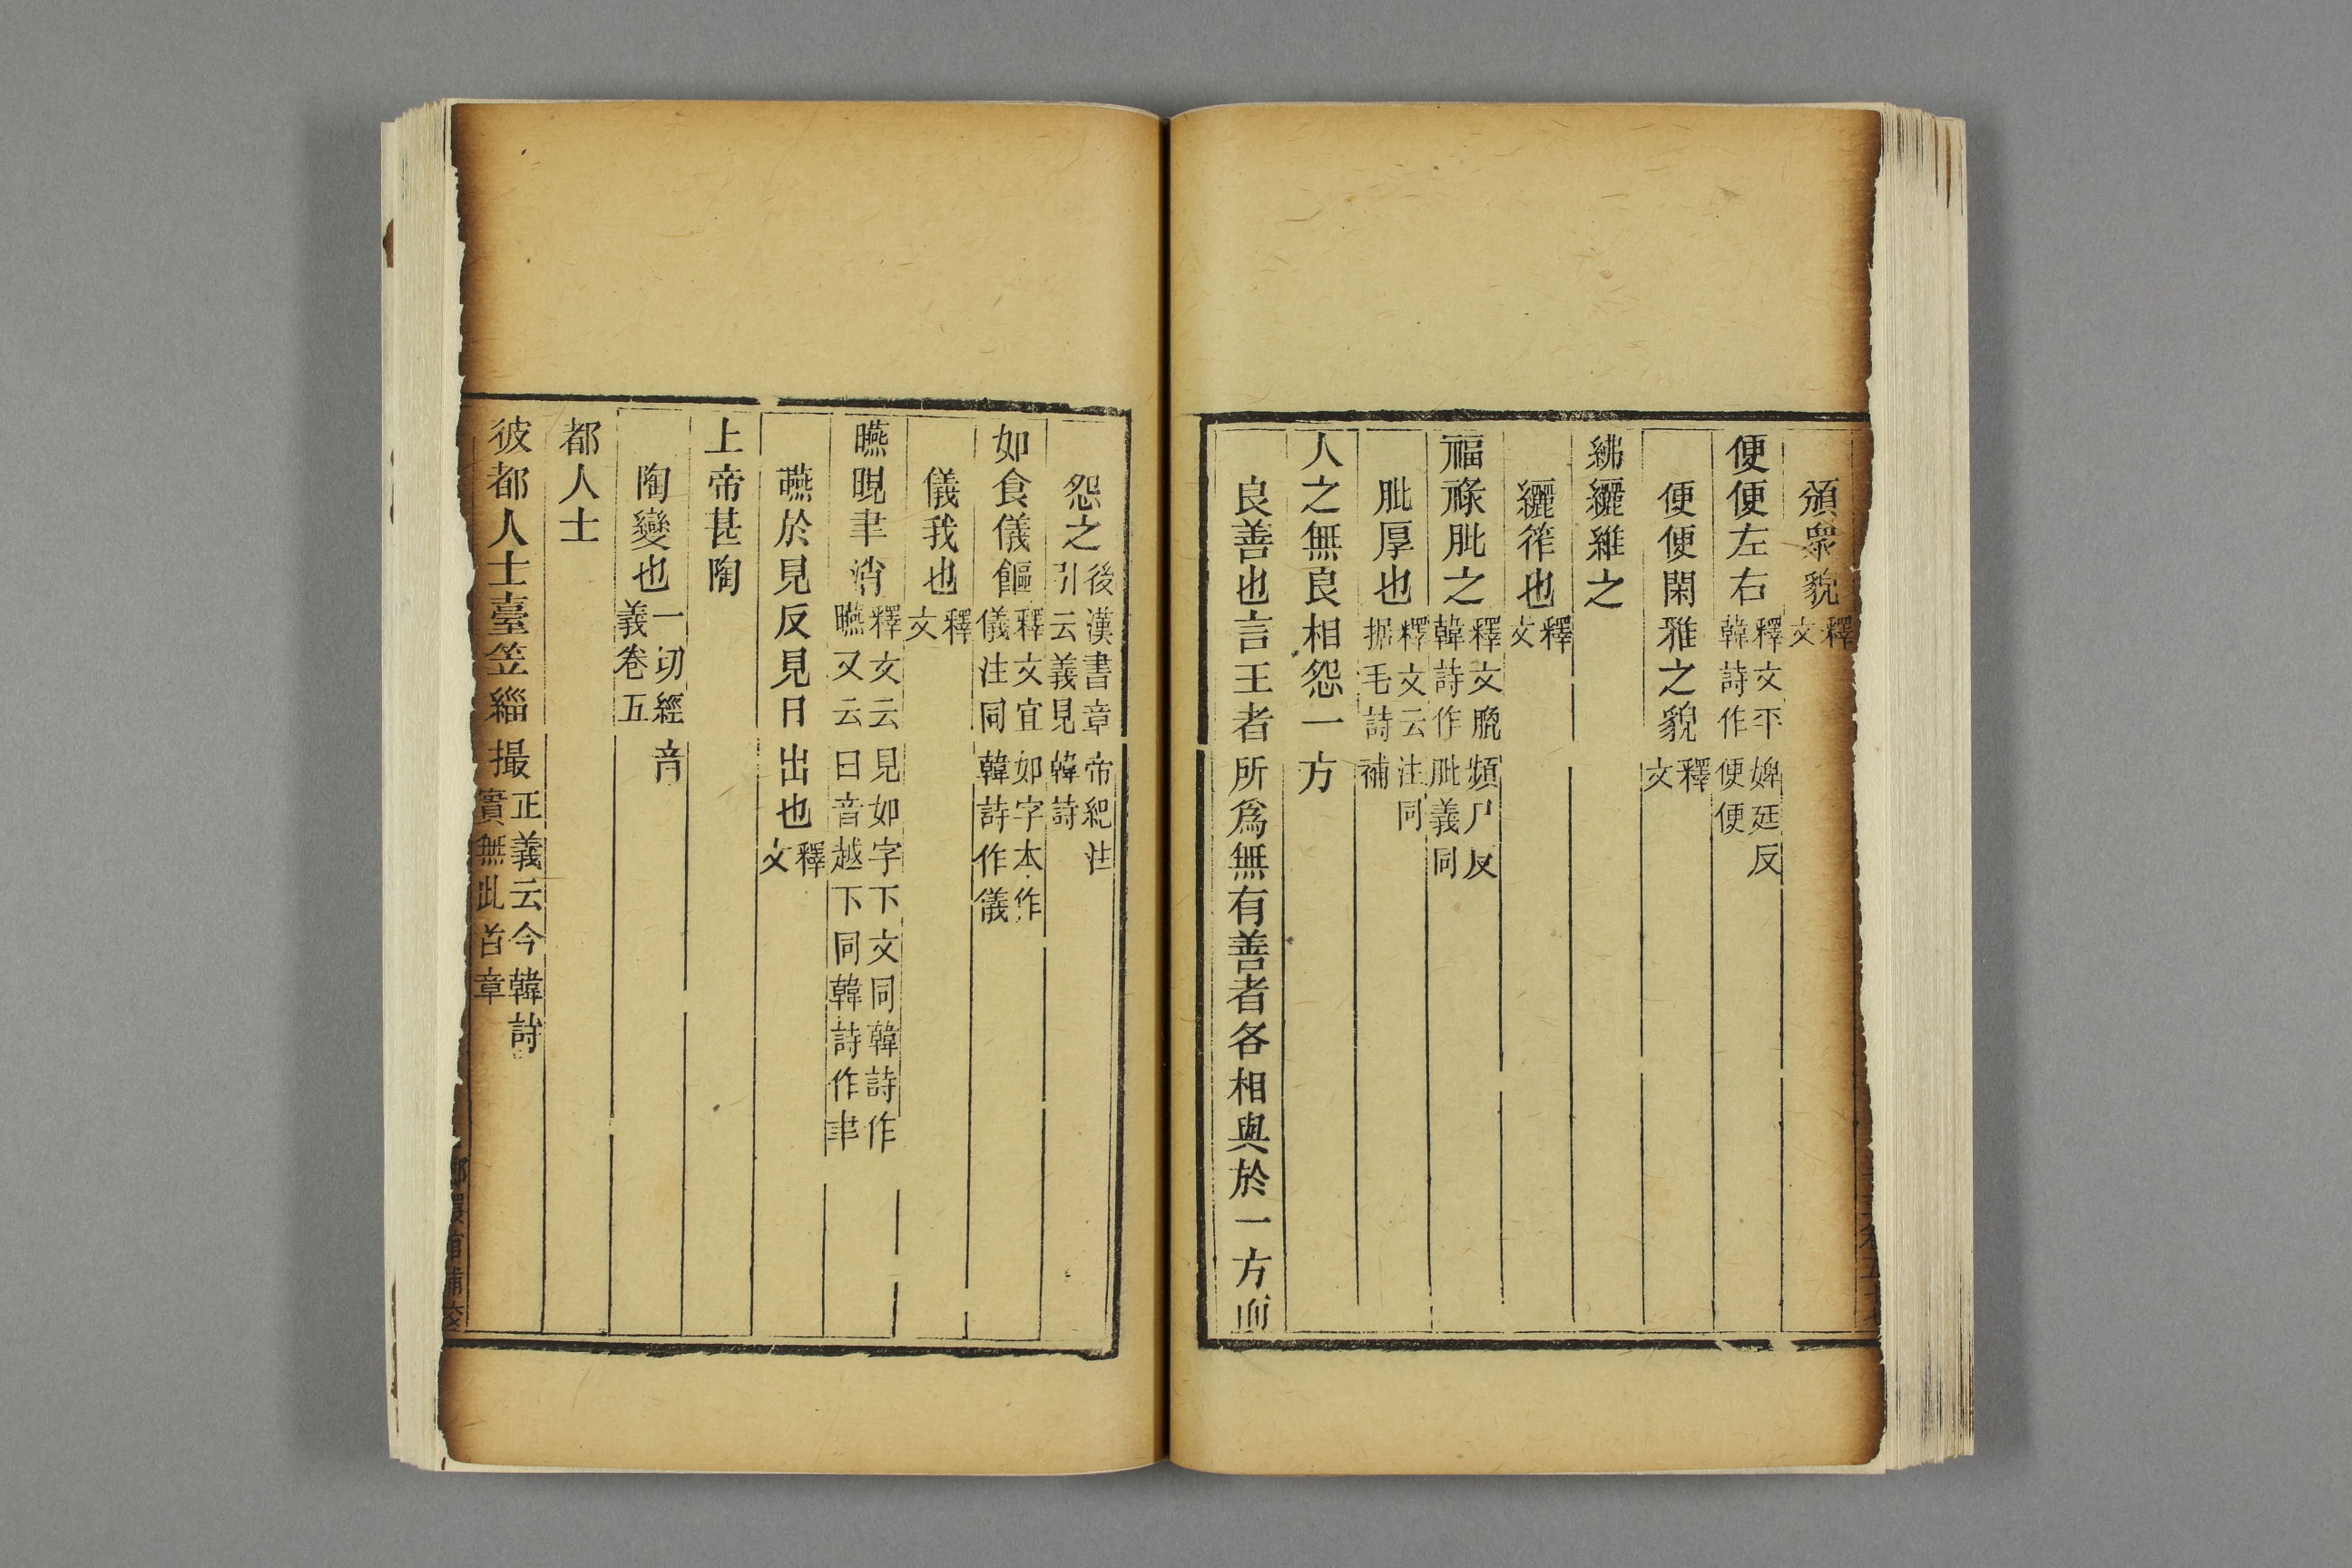 頒衆貌釋文
便便左右釋文平婢延反韓詩作便便
便便閑雅之貌釋文
紼纚維之
纚筰也釋文
福祿肶之釋文膍頻尸反韓詩作肶義同
肶厚也釋文云注同據毛詩補
人之無良相怨一方
良善也言王者所爲無有善者各相與於一方而
怨之後漢書章帝紀注引云義見韓詩
如食儀饇釋文宜如字本作儀注同韓詩作儀
儀我也釋文
曣晛聿消釋文云見如字下文同韓詩作曣又云曰音越下同韓詩作聿
曣於見反見日出也釋文
上帝甚陶
陶變也一切經音義卷五
都人士
彼都人士臺笠緇撮正義云今韓詩實無此首章
補校